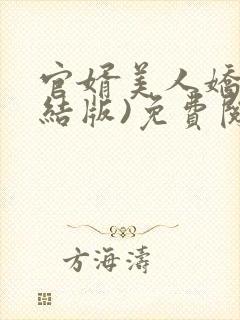 官婿美人嬌
結版)免費閱
方海濤